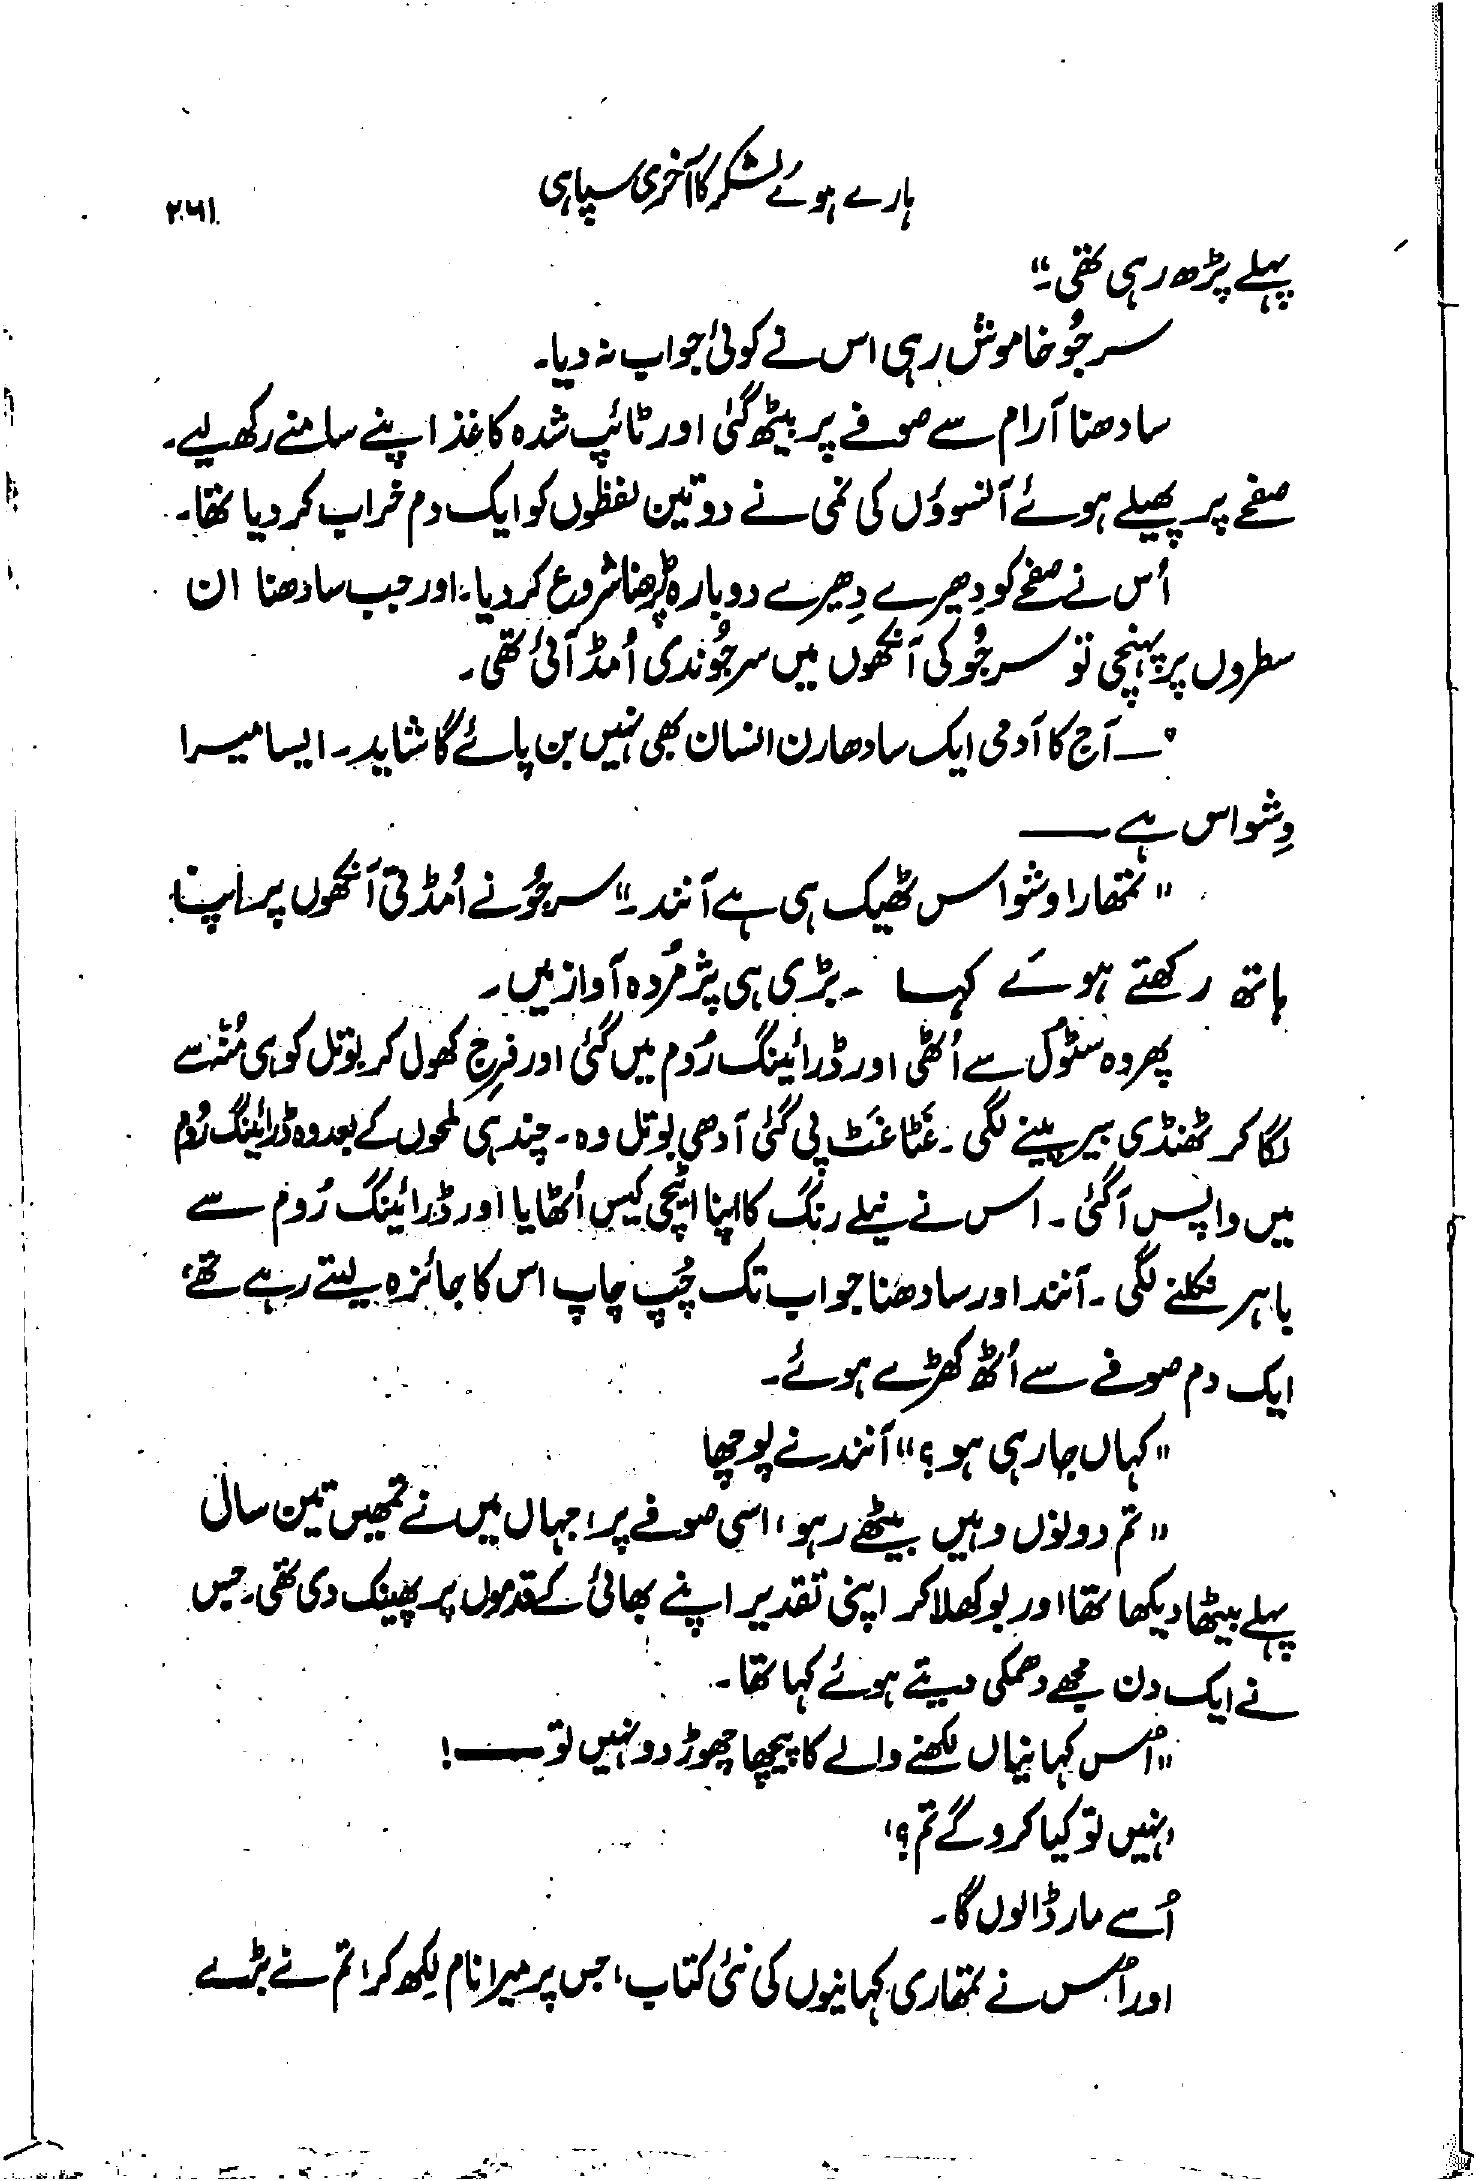 ہارے ہوئے لشکر کا آخری سپاہی
۲۶۱
پہلے پڑھ رہی تھی۔“
سرجُو خاموش رہی اس نے کوئی جواب نہ دیا۔
سادھنا آرام سے صوفے پر بیٹھ گئی اور ٹائپ شدہ کاغذ اپنے سامنے رکھ لیے۔
صفحے پر پھیلے ہوئے آنسوؤں کی نمی نے دو تین لفظوں کو ایک دم خراب کر دیا تھا۔
اُس نے صفحے کو دِھیرے دِھیرے دوبارہ پڑھنا شروع کر دیا۔ اور جب سادھنا ان
سطروں پر پہنچی تو سرجُو کی آنکھوں میں سرجُو ندی اُمڈ آئی تھی۔
”— آج کا آدمی ایک سادھارن انسان بھی نہیں بن پائے گا شاید۔ ایسا میرا
وِشواس ہے —
”تمھارا وشواس ٹھیک ہی ہے آنند۔“ سرجُو نے اُمڈتی آنکھوں پر اپنا
ہاتھ رکھتے ہوئے کہا ۔ بڑی ہی پژمُردہ آواز میں۔
پھر وہ سٹُول سے اُٹھی اور ڈرائینگ رُوم میں گئی اور فرِج کھول کر بوتل کو ہی مُنہ سے
لگا کر ٹھنڈی بیر پینے لگی۔ غَٹا غَٹ پی گئی آدھی بوتل وہ۔ چند ہی لمحوں کے بعد وہ ڈرائینگ رُوم
میں واپس آ گئی۔ اس نے نیلے رنگ کا اپنا اٹیچی کیس اُٹھایا اور ڈرائینگ رُوم سے
باہر نکلنے لگی۔ آنند اور سادھنا جو اب تک چُپ چاپ اس کا جائزہ لیتے رہے تھے،
ایک دم صوفے سے اُٹھ کھڑے ہوئے۔
”کہاں جا رہی ہو؟“ آنند نے پوچھا
”تم دونوں وہیں بیٹھے رہو، اسی صوفے پر، جہاں میں نے تمھیں تین سال
پہلے بیٹھا دیکھا تھا اور بوکھلا کر اپنی تقدیر اپنے بھائی کے قدموں پر پھینک دی تھی۔ جس
نے ایک دن مجھے دھمکی دیتے ہوئے کہا تھا۔
”اُس کہانیاں لکھنے والے کا پیچھا چھوڑ دو نہیں تو —!
’نہیں تو کیا کرو گے تم؟‘
اُسے مار ڈالوں گا۔
اور اُس نے تمھاری کہانیوں کی نئی کتاب، جس پر میرا نام لِکھ کر، تم نے بڑے